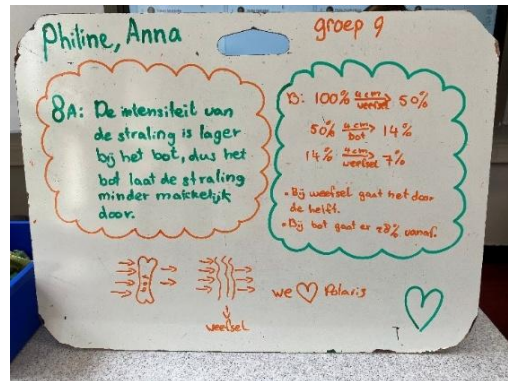 Philine, Anna
groep 9
8A: De intensiteit van
de straling is lager
bij het bot, dus het
bot laat de straling
minder makkelijk
door.
B: 100% 4cm weefsel → 50%
50% 4cm bot → 14%
14% 4cm weefsel → 7%
• Bij weefsel gaat het door
de helft.
• Bij bot gaat er 28% vanaf.
weefsel
we ♡ Polaris